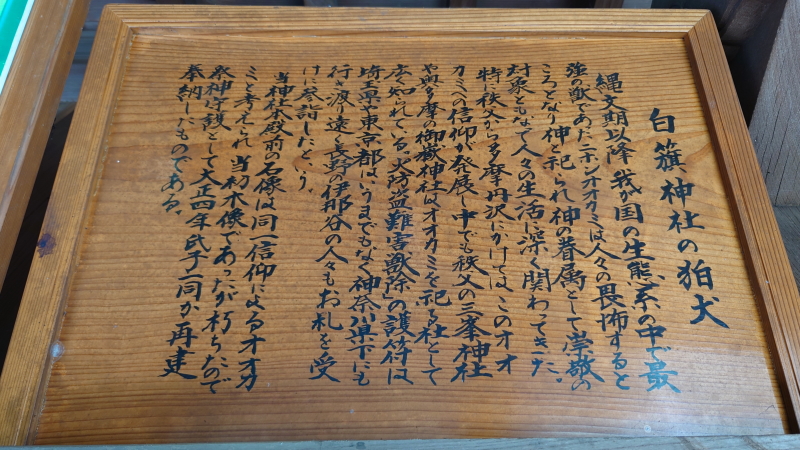 白籏神社の狛犬
縄文期以降、我が国の生態系の中で最
強の獣であたニホンオオカミは人々の畏怖すると
ころとなり神と祀られ神の眷属として崇敬の
対象ともなて人々の生活に深く関わってきた。
特に秩父から多摩丹沢にかけては、このオオ
カミの信仰が発展し中でも秩父の三峯神社
や奥多摩の御嶽神社はオオカミを祀る社として
広く知られている。火防盗難害獣除」の護符は
埼玉県や東京都はいうまでもなく神奈川県下にも
行き渡り遠く長野の伊那谷の人々もお札を受
けに参詣したという。
当神社本殿前の石像は同一信仰によるオオカ
ミと考えられ当初木像であったが朽ちたので
祭神守護として大正四年氏子一同が再建
奉納したものである。